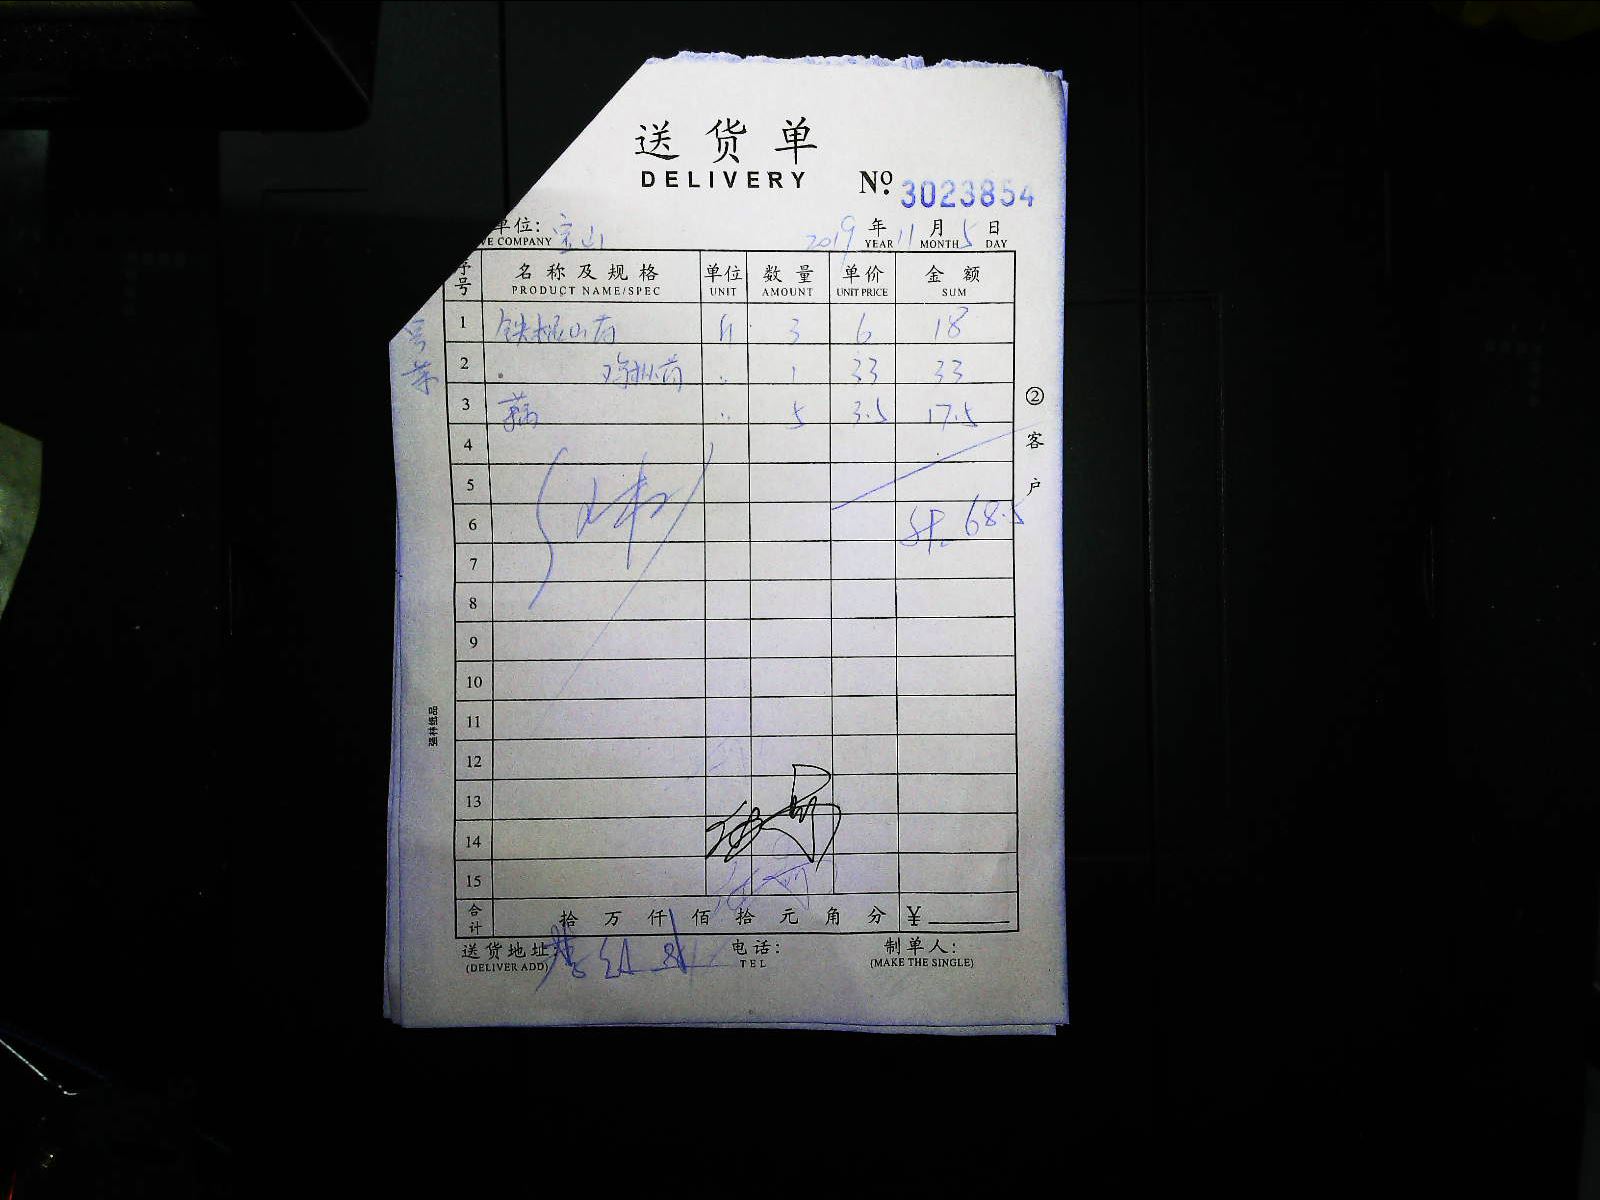 送货单
DELIVERY
№ 3023854
单位: 宝山 2019 年 11 月 5 日
VE COMPANY YEAR MONTH DAY
序号 名称及规格 单位 数量 单价 金额
PRODUCT NAME/SPEC UNIT AMOUNT UNIT PRICE SUM
1 铁棍山药 斤 3 6 18
2 鸡枞菌 〃 1 33 33
3 藕 〃 5 3.5 17.5
4
5
6 68.5
7
8
9
10
11
12
13
14
15
合计 拾 万 仟 佰 拾 元 角 分 ¥
送货地址: 电话: 制单人:
(DELIVER ADD) TEL (MAKE THE SINGLE)
②客户
强林纸品